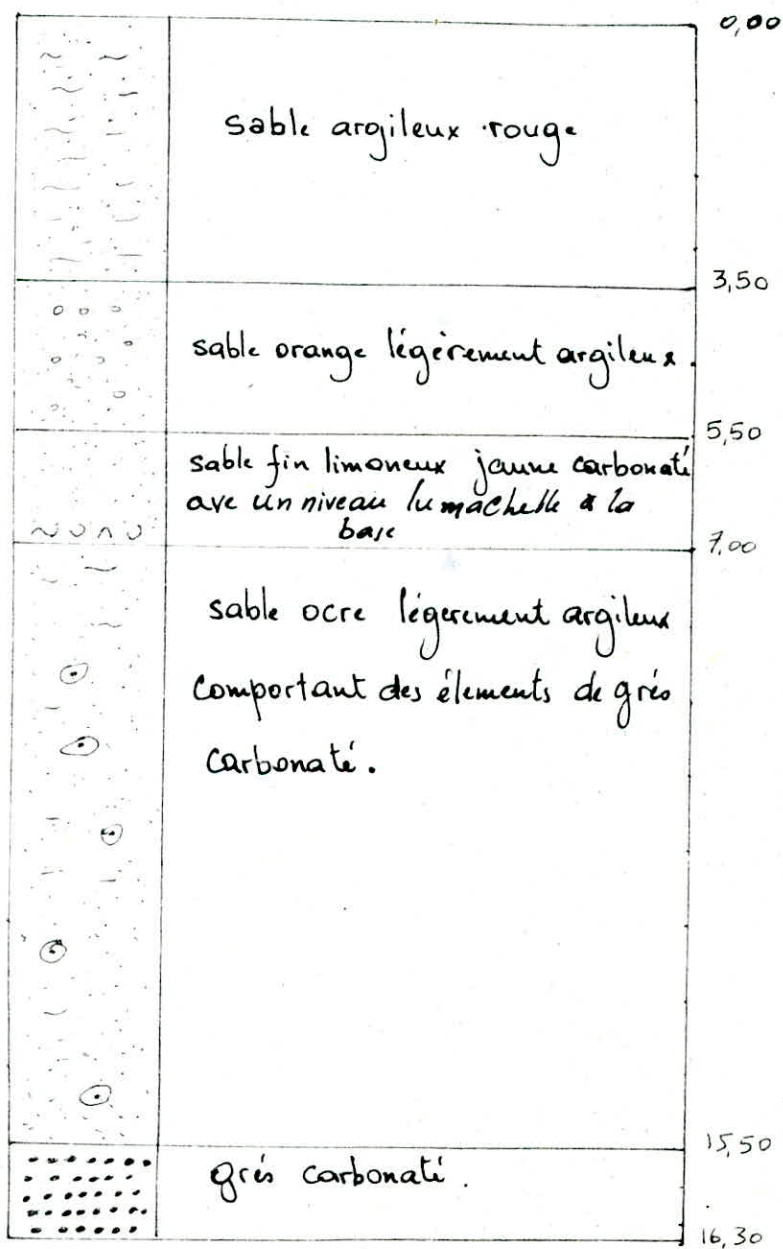 0,00
sable argileux rouge
3,50
sable orange légèrement argileux.
5,50
sable fin limoneux jaune carbonaté
avc un niveau lumachelle a la
base
7,00
sable ocre légerement argileux
comportant des élements de grés
carbonaté.
15,50
grés carbonaté.
16,30